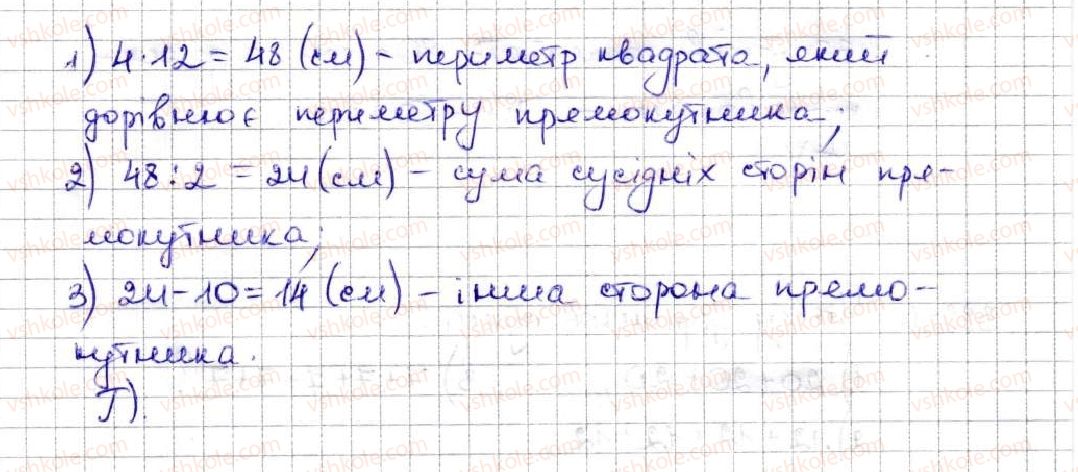 1) 4·12 = 48 (см) – периметр квадрата, який
дорівнює периметру прямокутника;
2) 48:2 = 24 (см) – сума сусідніх сторін пря-
мокутника;
3) 24-10 = 14 (см) – інша сторона прямо-
кутника.
Г).